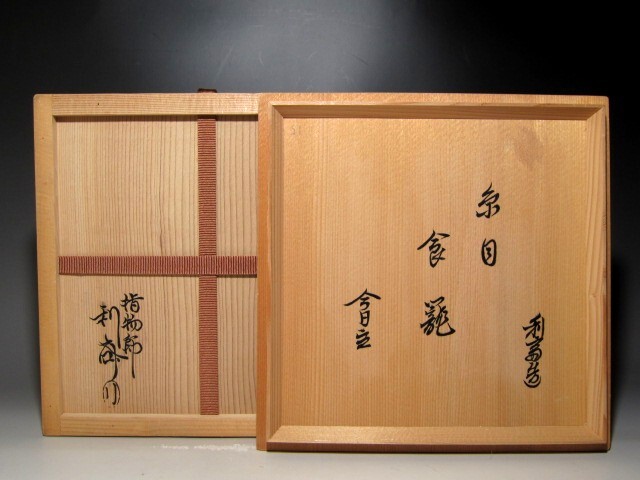 利斎造
糸目
食籠
今日
指物師
利斎